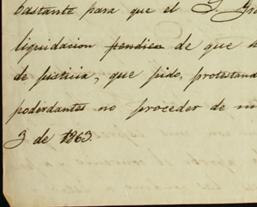 bastante para que el S. Gra
liquidacion pendien de que s
de justicia, que pido, protestand
poderdantes no proceder de m
3 de 1863.